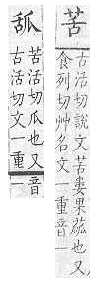 苦
古活切說文苦蔞果蓏也又
食列切艸名文一重音一
𦧇
苦活切瓜也又音
古活切文一重一